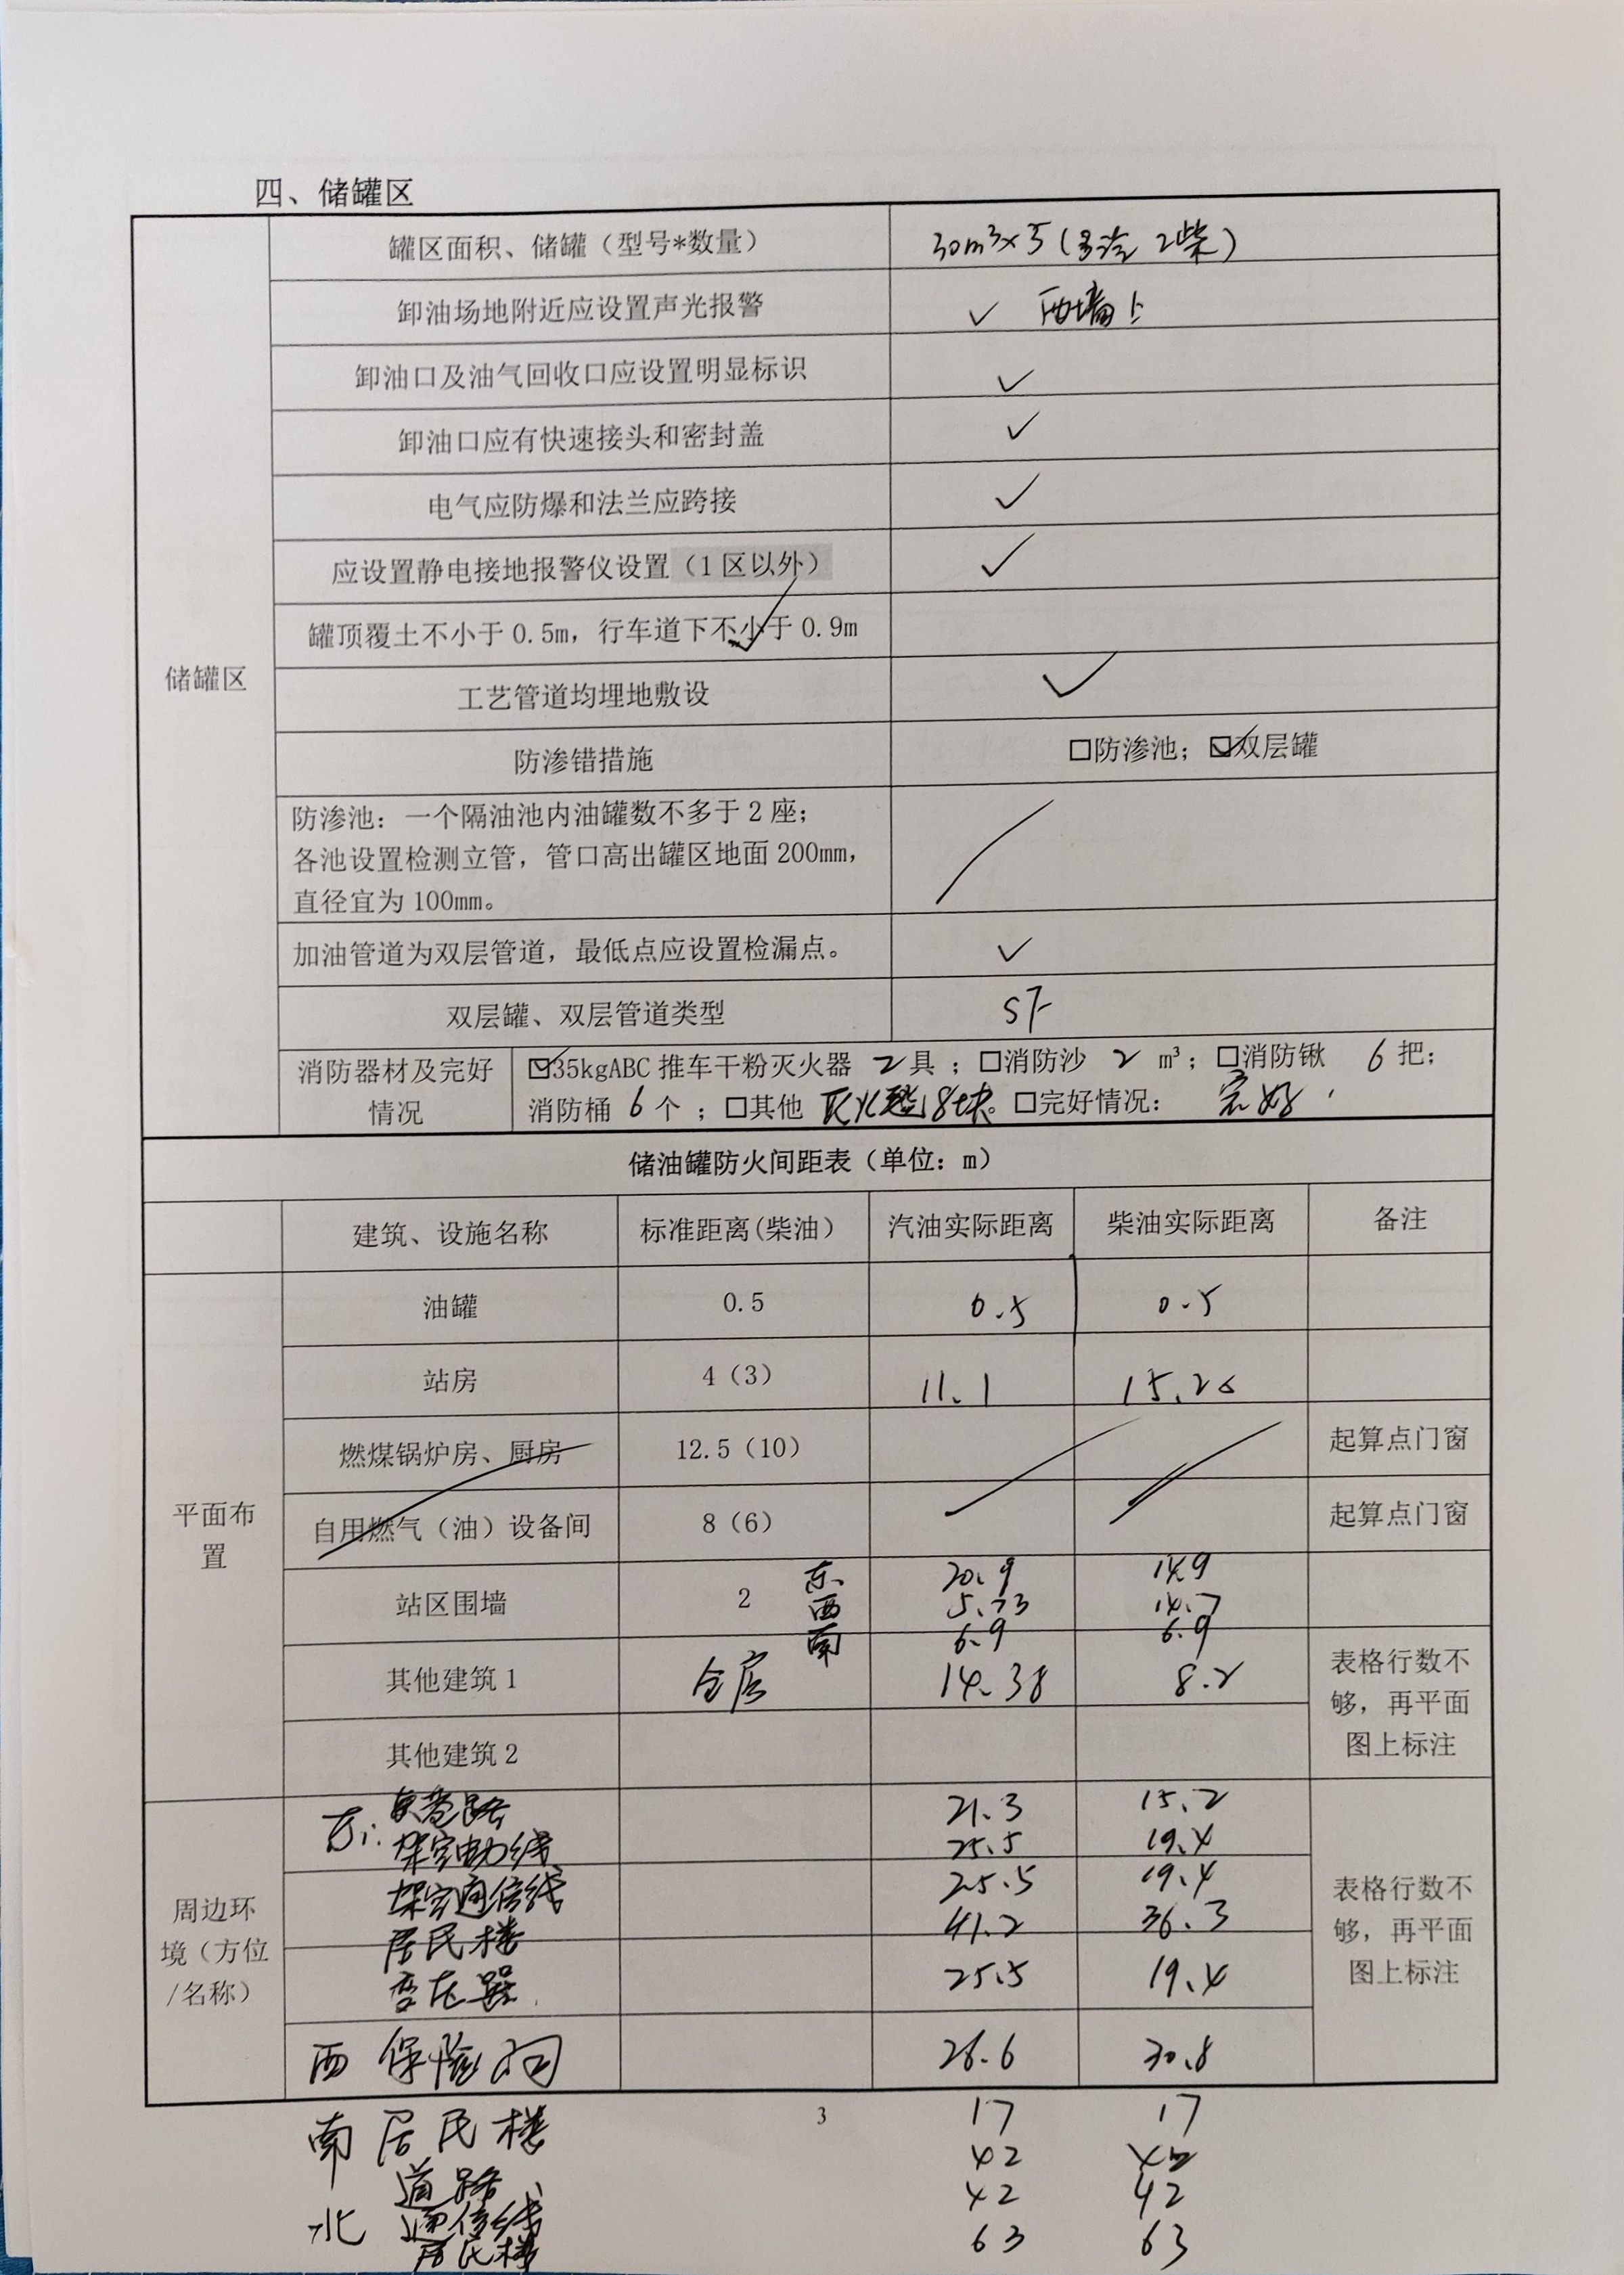 四、储罐区
储罐区
罐区面积、储罐（型号*数量） 30m³×5（3汽 2柴）
卸油场地附近应设置声光报警 ✓ 西墙上
卸油口及油气回收口应设置明显标识 ✓
卸油口应有快速接头和密封盖 ✓
电气应防爆和法兰应跨接 ✓
应设置静电接地报警仪设置（1区以外） ✓
罐顶覆土不小于0.5m，行车道下不小于0.9m ✓
工艺管道均埋地敷设 ✓
防渗错措施 □防渗池；☑双层罐
防渗池：一个隔油池内油罐数不多于2座；
各池设置检测立管，管口高出罐区地面200mm，
直径宜为100mm。
加油管道为双层管道，最低点应设置检漏点。 ✓
双层罐、双层管道类型 SF
消防器材及完好 ☑35kgABC推车干粉灭火器 2具；□消防沙 2 m³；□消防锹 6把；
情况 消防桶 6个；□其他 灭火毯8块。□完好情况： 完好.
储油罐防火间距表（单位：m）
建筑、设施名称 标准距离(柴油） 汽油实际距离 柴油实际距离 备注
平面布
置
油罐 0.5 0.5 0.5
站房 4（3） 11.1 15.26
燃煤锅炉房、厨房 12.5（10） 起算点门窗
自用燃气（油）设备间 8（6） 起算点门窗
站区围墙 2 东 20.9 14.9
西 5.73 14.7
南 6.9 6.9
其他建筑1 14.38 8.2
其他建筑2
表格行数不
够，再平面
图上标注
周边环
境（方位
/名称）
东: 21.3 15.2
架空电力线 25.5 19.4
架空通信线 25.5 19.4
居民楼 41.2 36.3
变压器 25.5 19.4
西 保险公司 26.6 30.8
表格行数不
够，再平面
图上标注
3
南 居民楼 17 17
道路 42 42
北 通信线 42 42
居民楼 63 63